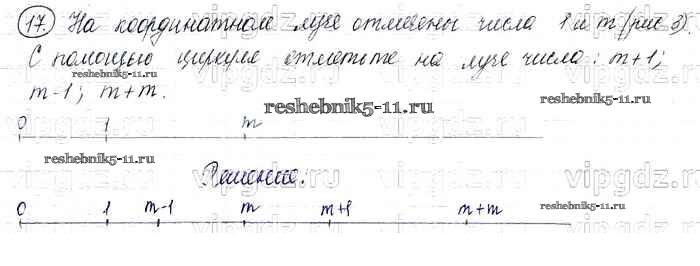 17. На координатном луче отмечены числа 1 и m (рис 3).
С помощью циркуля отметьте на луче числа: m+1;
reshebnik5-11.ru
m-1; m+m.
reshebnik5-11.ru
vipgdz.ru
0 1 m
reshebnik5-11.ru
vipgdz.ru
vipgdz.ru
Решение.
vipgdz.ru
vipgdz.ru
0 1 m-1 m m+1 m+m
reshebnik5-11.ru
reshebnik5-11.ru
vipgdz.ru
vipgdz.ru